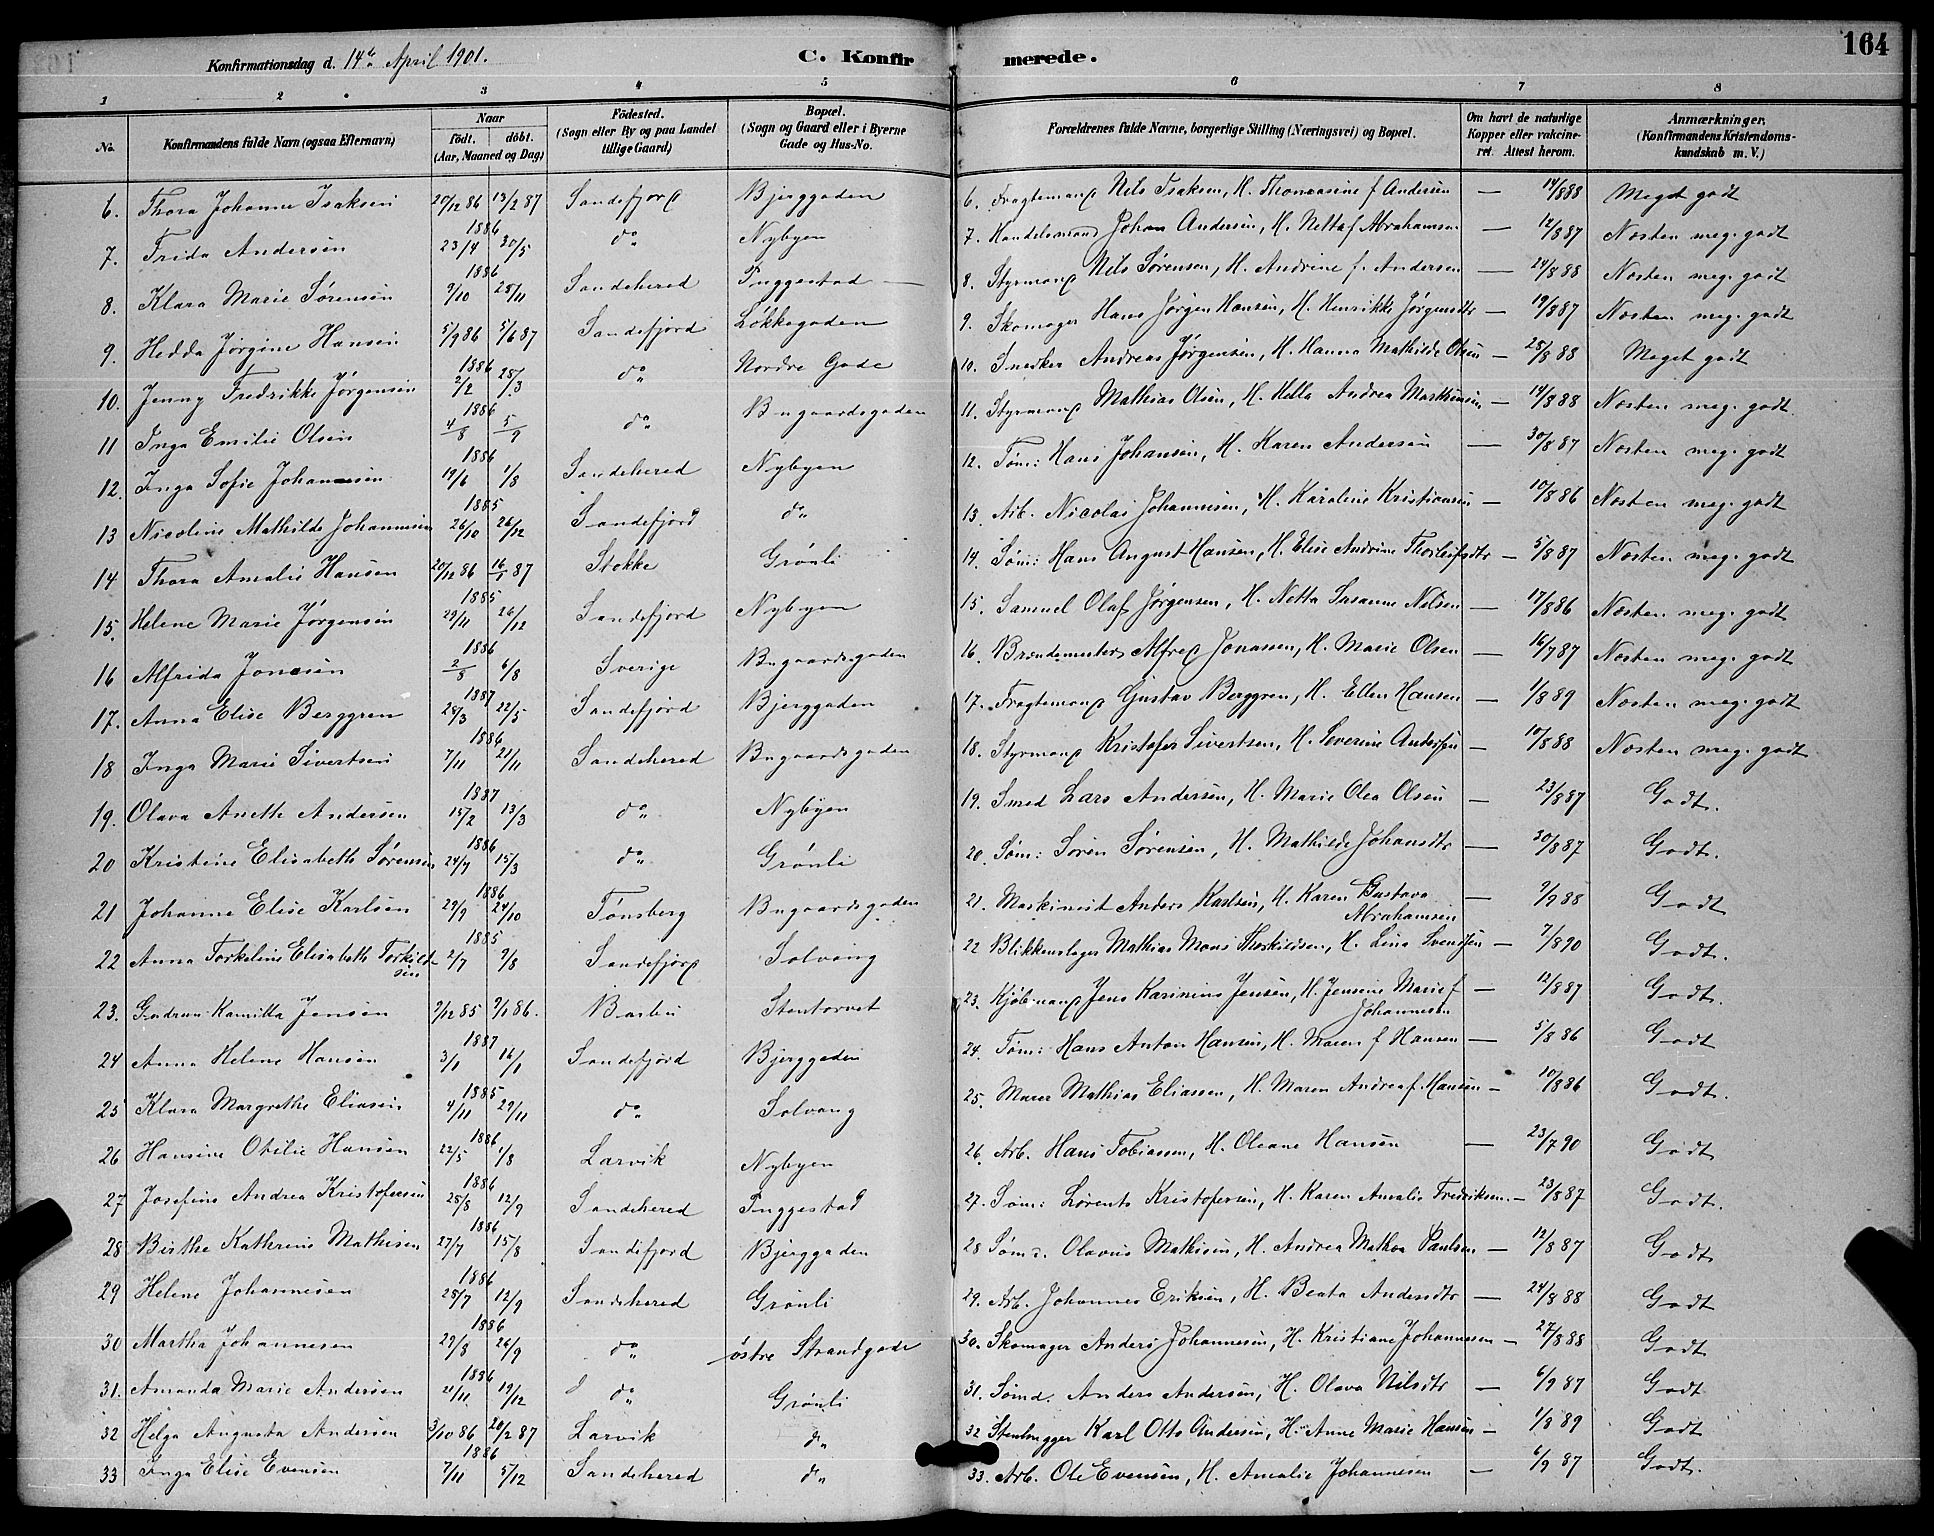 Konfirmationsdag d. 14de April 1901. C. Konfirmerede. 164
1 2 3 4 5 6 7 8
No. Konfirmandens fulde Navn (ogsaa Efternavn) Naar födt. döbt. (Aar, Maaned og Dag) Födested. (Sogn eller By og paa Landet tillige Gaard) Bopæl. (Sogn og Gaard eller i Byerne Gade og Hus-No. Forældrenes fulde Navne, borgerlige Stilling (Næringsvei) og Bopæl. Om havt de naturlige Kopper eller vakcineret. Attest herom. Anmærkninger. (Konfirmandens Kristendomskundskab m. V.)
6. Thora Johanne Isaksen 20/12 86 13/2 87 Sandefjord Bjerggaden 6. Fragtemand Nils Isaksen, H. Thomasine f Andersen — 14/8 88 Meget godt
7. Frida Andersen 1886 23/4 30/5 do Nybyen 7. Handelsmand Johan Andersen, H. Netta f Abrahamsen — 12/8 87 Næsten meg. godt
8. Klara Marie Sørensen 1886 9/10 28/11 Sandehered Fuggestad 8. Styrmand Nils Sørensen, H. Andrine f. Andersen — 24/8 88 Næsten meg. godt
9. Hedda Jørgine Hansen 5/9 86 5/6 87 Sandefjord Løkkegaden 9. Skomager Hans Jørgen Hansen, H. Henrikke Jørgensdtr — 19/8 87 Næsten meg. godt
10. Jenny Fredrikke Jørgensen 1886 2/2 28/3 do Nordre Gade 10. Snedker Andreas Jørgensen, H. Hanna Mathilde Olsen — 28/8 88 Meget godt
11 Inga Emilie Olsen 1886 4/8 5/9 do Bugaardsgaden 11. Styrmand Mathias Olsen, H. Hella Andrea Mathisen — 14/8 88 Næsten meg. godt
12. Inga Sofie Johannesen 1886 19/6 1/8 Sandehered Nybyen 12. Tøm: Hans Johansen, H. Karen Andersen — 30/8 87 Næsten meg. godt
13 Nicoline Mathilde Johannesen 1885 26/10 26/12 Sandefjord do 13. Arb. Nicolai Johannesen, H. Karoline Kristiansen — 10/8 86 Næsten meg. godt
14 Thora Amalie Hansen 20/12 86 16/5 87 Stokke Grønli 14. Søm: Hans August Hansen, H. Elise Andrine Thorleifsdtr — 5/8 87 Næsten meg. godt
15. Helene Marie Jørgensen 1885 29/11 26/12 Sandefjord Nybyen 15. Samuel Olaf Jørgensen, H. Netta Susanne Nilsen — 17/8 86 Næsten meg. godt
16 Alfrida Jonasen 1886 2/5 6/8 Sverige Bugaardsgaden 16. Brændemester Alfred Jonassen, H. Marie Olsen — 16/7 87 Næsten meg. godt
17. Anna Elise Berggren 1887 28/3 22/5 Sandefjord Bjerggaden 17. Fragtemand Gustav Berggren, H. Ellen Hansen — 1/8 89 Næsten meg. godt
18 Inga Marie Sivertsen 1886 7/11 21/11 Sandehered Bugaardsgaden 18. Styrmand Kristofer Sivertsen, H. Severine Andersen — 10/8 88 Næsten meg. godt
19. Olava Anette Andersen 1887 15/2 13/3 do Nybyen 19. Smed Lars Andersen, H. Marie Olea Olsen — 23/8 87 Godt.
20 Kristine Elisabeth Sørensen 1886 24/7 15/3 do Grønli 20. Søm: Søren Sørensen, H. Mathilde Johansdtr — 30/8 87 Godt.
21 Johanne Elise Karlsen 1886 29/9 24/10 Tønsberg Bugaardsgaden 21. Maskinist Anders Karlsen, H. Karen Gustava Abrahamsen — 9/9 88 Godt
22 Anna Torkeline Elisabeth Torkildsen 1885 2/7 9/8 Sandefjord Solvang 22 Blikkenslager Mathias Mons Thorkildsen, H. Lina Svendsen — 7/8 90 Godt.
23. Gudrun Kamilla Jensen 9/12 85 9/1 86. Barbu Stentorvet 23. Kjøbmand Jens Karinius Jensen, H. Jensine Marie f Johannesen 12/8 87 Godt.
24 Anna Helene Hansen 1887 3/1 16/1 Sandefjord Bjerggaden 24. Tøm: Hans Anton Hansen, H. Maren f Hansen — 5/8 86 Godt
25 Klara Margrethe Eliasen 1885 4/11 29/11 do Solvang 25. Murer Mathias Eliassen, H. Maren Andrea f. Hansen — 10/8 86 Godt.
26 Hansine Otilie Hansen 1886 22/5 1/8 Larvik Nybyen 26. Arb. Hans Tobiassen, H. Oleane Hansen — 23/7 90 Godt
27 Josefine Andrea Kristofersen 1886 25/8 12/9 Sandehered Fuggestad 27. Søm: Lorents Kristofersen, H. Karen Amalie Fredriksen. — 23/8 87 Godt.
28 Birthe Kathrine Mathisen 1886 27/7 15/8 Sandefjord Bjerggaden 28 Søm: Olavus Mathisen, H. Andrea Mathea Paulsen — 12/8 87 Godt
29 Helene Johannesen 1886 25/7 12/9 Sandehered Grønli 29. Arb. Johannes Eriksen, H. Beata Andersdtr — 24/8 88 Godt
30 Martha Johannesen 1886 29/8 26/9 do østre Strandgade 30. Skomager Anders Johannesen, H. Kristiane Johannesen — 27/8 88 Godt
31. Amanda Marie Andersen 1886 21/11 19/12 do Grønli 31. Sømd. Anders Andersen, H. Olava Nilsdtr — 6/9 87 Godt
32 Helga Augusta Andersen 3/10 86 20/2 87 Larvik do 32 Stenhugger Karl Otto Andersen, H. Anne Marie Hansen — 1/8 89 Godt
33 Inga Elise Evensen 1886 7/11 5/12 Sandehered do 33. Arb. Ole Evensen, H. Amalie Johannesen — 6/9 87 Godt.